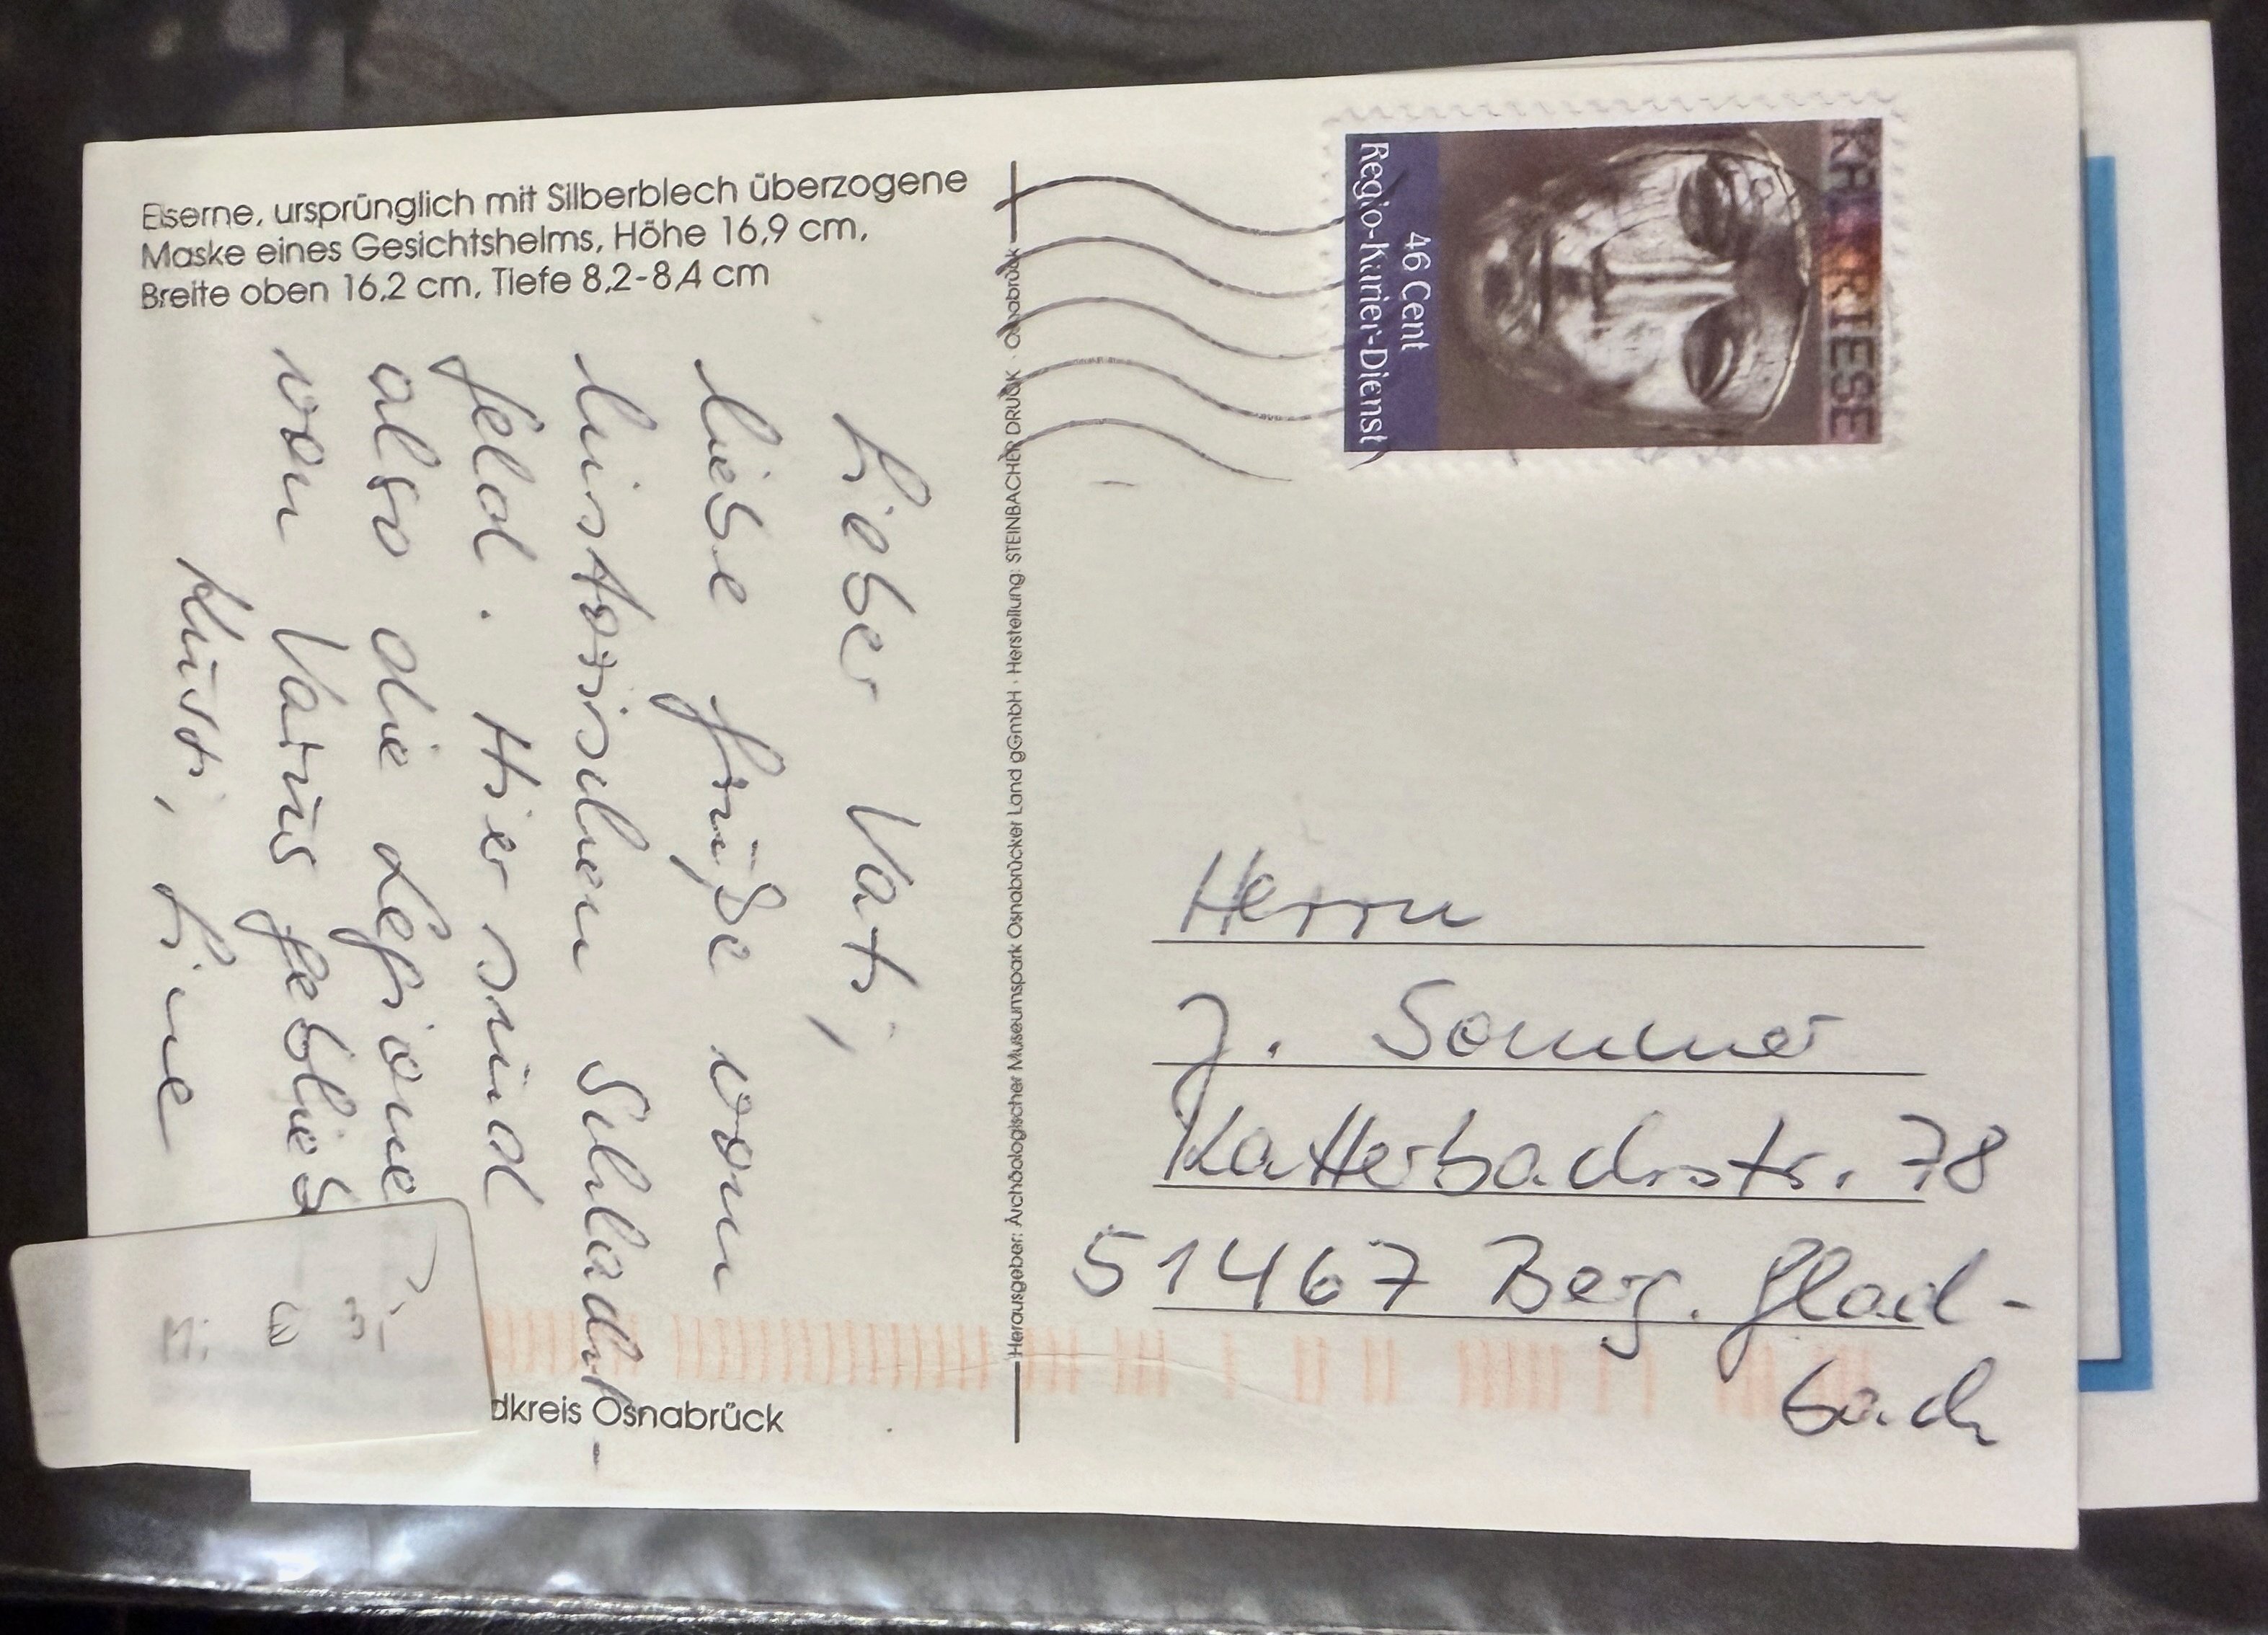 Eiserne, ursprünglich mit Silberblech überzogene
Maske eines Gesichtshelms, Höhe 16,9 cm,
Breite oben 16,2 cm, Tiefe 8,2-8,4 cm
Lieber Vati,
liebe Grüße vom
historischen Schlacht-
feld. Hier sind
also die Legionen
von Varus geblieben
Kusti, Line
dkreis Osnabrück
Herausgeber: Archäologischer Museumspark Osnabrücker Land gGmbH · Herstellung: STEINBACHER DRUCK · Osnabrück
KALKRIESE
46 Cent
Regio-Kurier-Dienst
Herrn
J. Sommer
Katterbachstr. 78
51467 Berg. Glad-
bach